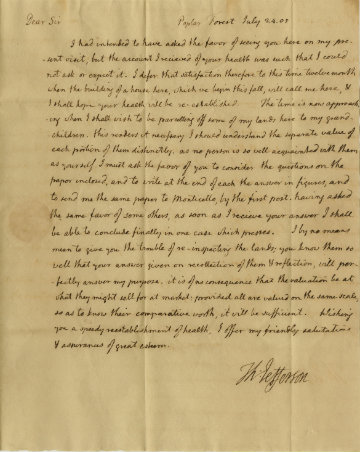 Dear Sir Poplar Forest July 24. 05
I had intended to have asked the favor of seeing you here on my pre-
sent visit, but the account I recieved of your health was such that I could
not ask or expect it. I defer that satisfaction therefore to this time twelvemonth
when the building of a house here, which we begin this fall, will call me here, &
I shall hope your health will be re-established. The time is now approach-
ing when I shall wish to be parcelling off some of my lands here to my grand-
children. this renders it necessary I should understand the separate value of
each portion of them distinctly. as no person is so well acquainted with them
as yourself I must ask the favor of you to consider the questions on the
paper inclosed, and to write at the end of each the answer in figures, and
to send me the same paper to Monticello, by the first post. having asked
the same favor of some others, as soon as I recieve your answer I shall
be able to conclude finally in one case which presses. I by no means
mean to give you the trouble of re-inspecting the lands; you know them so
well that your answer given on recollection of them & reflection, will per-
fectly answer my purpose. it is of no consequence that the valuation be at
what they might sell for at market: provided all are valued on the same scale,
so as to know their comparative worth, it will be sufficient. Wishing
you a speedy reestablishment of health, I offer my friendly salutations
& assurances of great esteem.
Th: Jefferson